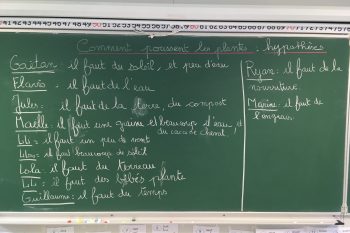 Comment poussent les plantes : hypothèses
Gaëtan : il faut du soleil, et peu d'eau
Flavio : il faut de l'eau
Jules : il faut de la terre, du compost
Maëlle : il faut une graine et beaucoup d'eau, et
du caca de cheval !
Lili : il faut un peu de vent
Lilou : il faut beaucoup de soleil
Lola : il faut du terreau
Lili : il faut des bébés plante
Guillaume : il faut du temps
Ryan : il faut de la
nourriture.
Marine : il faut de
l'engrais.